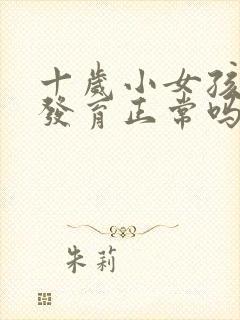 十歲小女孩
發育正常吗
朱莉